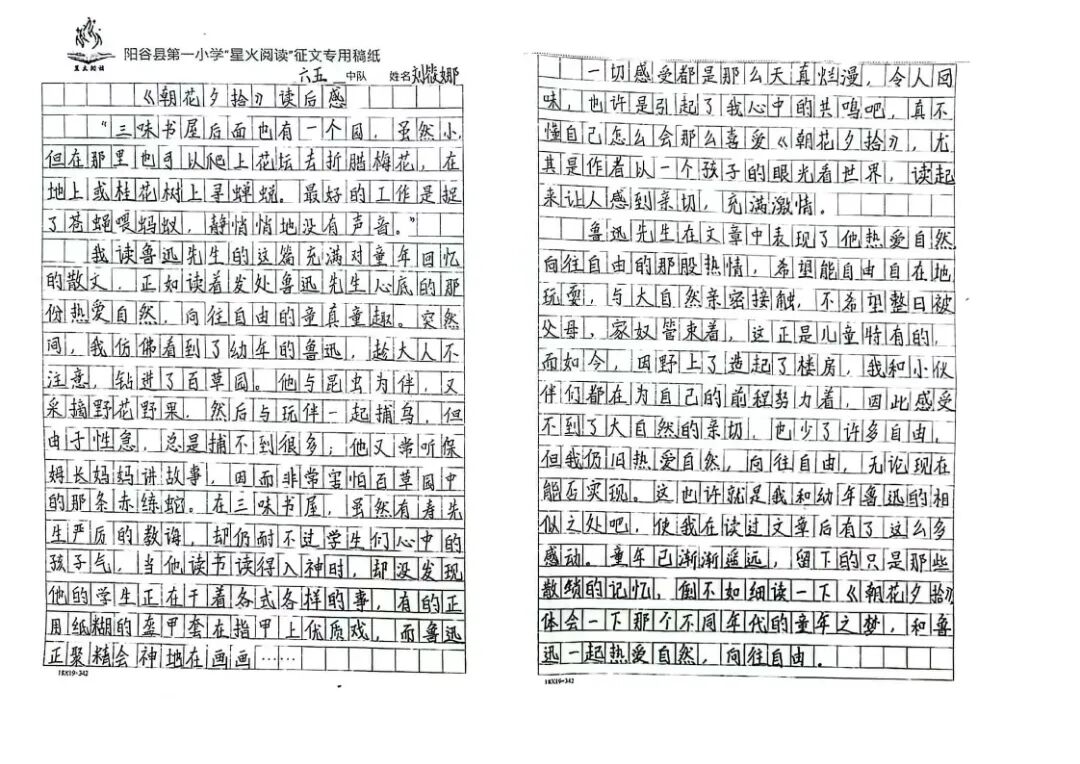 星火阅读
阳谷县第一小学“星火阅读”征文专用稿纸
六五 中队 姓名 刘 娜
《朝花夕拾》读后感
“三味书屋后面也有一个园，虽然小，
但在那里也可以爬上花坛去折腊梅花，在
地上或桂花树上寻蝉蜕。最好的工作是捉
了苍蝇喂蚂蚁，静悄悄地没有声音。”
我读鲁迅先生的这篇充满对童年回忆
的散文，正如读着发处鲁迅先生心底的那
份热爱自然，向往自由的童真童趣。突然
间，我仿佛看到了幼年的鲁迅，趁大人不
注意，钻进了百草园。他与昆虫为伴，又
采摘野花野果，然后与玩伴一起捕鸟，但
由于性急，总是捕不到很多；他又常听保
姆长妈妈讲故事，因而非常害怕百草园中
的那条赤练蛇。在三味书屋，虽然有寿先
生严质的教诲，却仍耐不过学生们心中的
孩子气，当他读书读得入神时，却没发现
他的学生正在干着各式各样的事，有的正
用纸糊的盔甲套在指甲上优质戏，而鲁迅
正聚精会神地在画画……
18X19=342
一切感受都是那么天真烂漫，令人回
味，也许是引起了我心中的共鸣吧，真不
懂自己怎么会那么喜爱《朝花夕拾》，尤
其是作者以一个孩子的眼光看世界，读起
来让人感到亲切，充满激情。
鲁迅先生在文章中表现了他热爱自然
向往自由的那股热情，希望能自由自在地
玩耍，与大自然亲密接触，不希望整日被
父母，家奴管束着，这正是儿童特有的，
而如今，因野上了造起了楼房，我和小伙
伴们都在为自己的前程努力着，因此感受
不到了大自然的亲切，也少了许多自由，
但我仍旧热爱自然，向往自由，无论现在
能否实现。这也许就是我和幼年鲁迅的相
似之处吧，使我在读过文章后有了这么多
感动。童年已渐渐遥远，留下的只是那些
散绡的记忆，倒不如细读一下《朝花夕拾》
体会一下那个不同年代的童年之梦，和鲁
迅一起热爱自然，向往自由．
18X19=342